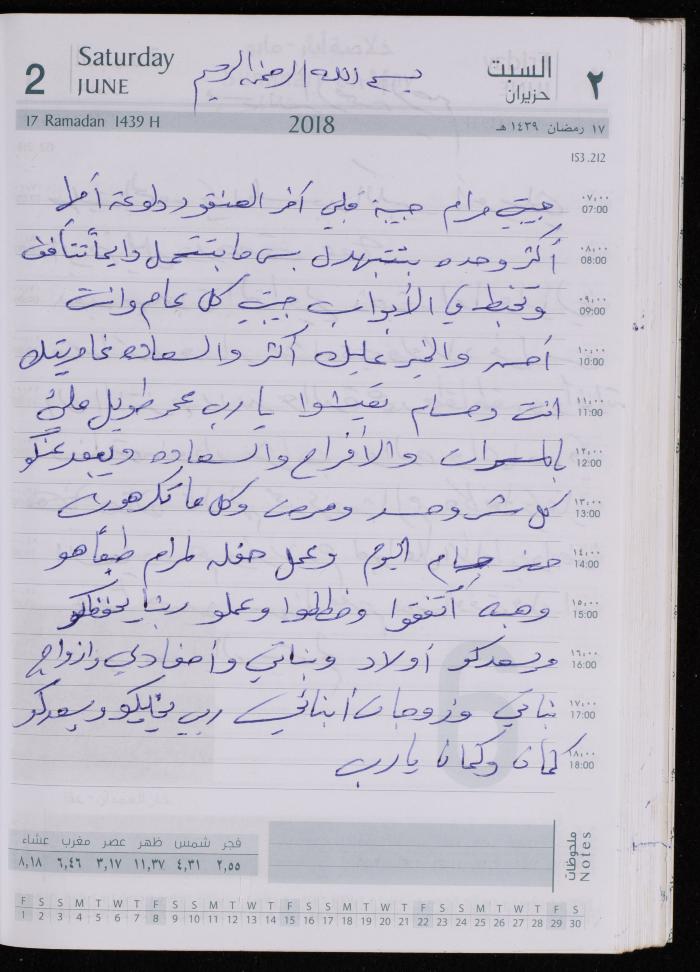 2 Saturday JUNE بسم الله الرحمن الرحيم السبت حزيران ٢
17 Ramadan 1439 H 2018 ١٧ رمضان ١٤٣٩ هـ
153.212
٠٧,٠٠ 07:00 حبيبتي مرام حبيبة قلبي آخر العنقود دلوعة أمل
٠٨,٠٠ 08:00 أكثر وحده بتتبهدل بس ما بتتحمل دايماً تتأفف
٠٩,٠٠ 09:00 وتخبط في الأبواب حبيبتي كل عام وانت
١٠,٠٠ 10:00 أحسن والخير عليك أكثر والسعاده غامريتك
١١,٠٠ 11:00 انت وحسام تعيشوا يا رب عمر طويل مليئ
١٢,٠٠ 12:00 بالمسرات والأفراح والسعاده ويبعد عنكو
١٣,٠٠ 13:00 كل شر وحسد ومرض وكل ما تكرهون
١٤,٠٠ 14:00 حسام اليوم وعمل حفله لمرام طبعاً هو
١٥,٠٠ 15:00 وهبه أتفقوا وخططوا وعملو ربنا يحفظكو
١٦,٠٠ 16:00 ويسعدكو أولاد وبناتي وأحفادي وازواج
١٧,٠٠ 17:00 بناتي وزوجات أبنائي ربي يخليكو ويسعدكو
١٨,٠٠ 18:00 كمان وكمان يا رب
ملحوظات Notes
فجر شمس ظهر عصر مغرب عشاء
٢,٥٥ ٤,٣١ ١١,٣٧ ٣,١٧ ٦,٤٦ ٨,١٨
F S S M T W T F S S M T W T F S S M T W T F S S M T W T F S
1 2 3 4 5 6 7 8 9 10 11 12 13 14 15 16 17 18 19 20 21 22 23 24 25 26 27 28 29 30